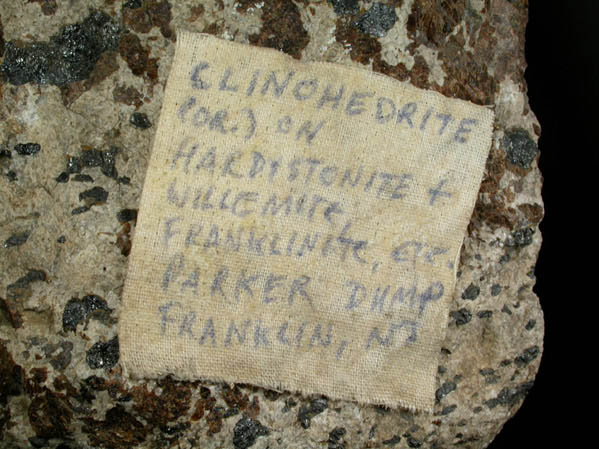 CLINOHEDRITE
(OR.) ON
HARDYSTONITE +
WILLEMITE,
FRANKLINITE, ETC.
PARKER DUMP
FRANKLIN, NJ